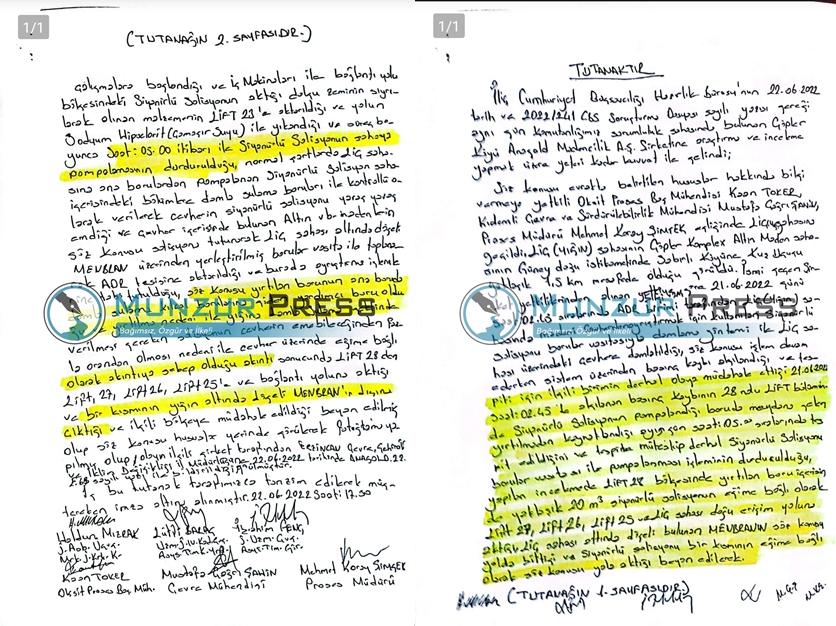 1/1
(TUTANAĞIN 2. SAYFASIDIR.)
çalışmalara başlandığı ve İş Makinaları ile bağlantı yolu
bölgesindeki Siyanürlü Solisyonun aktığı dolgu zeminin sıyrı-
larak alınan malzemenin LİFT 23'e aktarıldığı ve yolun
Sodyum Hipoklorit (Çamaşır Suyu) ile yıkandığı ve
Saat: 05:00 itibarı ile Siyanürlü Solisyonun sahaya
pompalamasının durdurulduğu, normal şartlarda Liç saha-
sına ana borulardan pompalanan Siyanürlü Solisyon saha
içerisindeki damla sulama boruları ile kontrollü o-
larak verilerek cevherin siyanürlü solisyonu yavaş yavaş
emdiği ve cevher içerisinde bulunan Altın vb. madenlerin
söz konusu solisyonu tutunarak Liç sahası altında döşeli
MENBRAN üzerinden yerleştirilmiş borular vasıta ile toplana-
rak ADR tesisine aktarıldığı ve burada ayrıştırma işlemi
söz konusu yırtılan borunun ana boru
MUNZUR PRESS
Bağımsız, Özgür ve İlkeli
verilmesi gereken cevherin emebileceğinden faz-
la orandan olması nedeni ile cevher üzerinde eğime bağlı
olarak akıntıya sebep olduğu akıntı sonucunda LİFT 28 den
Lift, 27, Lift 26, Lift 25'e ve bağlantı yoluna aktığı
ve bir kısmının yığın altında döşeli MENBRAN'ın dışına
çıktığı ve ilgili bölgeye müdahale edildiği beyan edilmiş
olup söz konusu hususlar yerinde görülerek fotoğrafı ya-
pılmış olup, olayın ilgili şirket tarafından ERZİNCAN Çevre, Şehircilik
ve İklim Değişikliği İl Müdürlüğüne 22.06.2022 tarihinde
İş bu tutanak tarafımızca tanzim edilerek müş-
tereken imza altına alınmıştır. 22.06.2022 Saat: 17.30
Haldun MIZRAK
Lütfi
İbrahim GENÇ
Kaan TOKER
Oksit Proses Baş Müh.
Mustafa Çağrı ŞAHİN
Çevre Mühendisi
Mehmet Koray ŞİMŞEK
Proses Müdürü
1/1
TUTANAKTIR
İliç Cumhuriyet Başsavcılığı Hazırlık Bürosu'nun 22.06.2022
tarih ve 2022/241 CBS Soruşturma Dosyası sayılı yazısı gereği
aynı gün Komutanlığımız sorumluluk sahasında bulunan Çöpler
Köyü Anagold Madencilik A.Ş. Şirketine araştırma ve inceleme
yapmak üzere yeteri kadar kuvvet ile gelindi;
Söz konusu evrakta belirtilen hususlar hakkında bilgi
vermeye yetkili Oksit Proses Baş Mühendisi Kaan TOKER,
Kıdemli Çevre ve Sürdürülebilirlik Mühendisi Mustafa Çağrı ŞAHİN,
Proses Müdürü Mehmet Koray ŞİMŞEK eşliğinde Liç sahasına
geçildi. LİÇ (YIĞIN) sahasının Çöpler Komplex Altın Maden saha-
sının Güney doğu istikametinde Sabırlı Köyüne Kuş Uçuşu
yaklaşık 1,5 km mesafede olduğu görüldü. İsmi geçen Şir-
21.06.2022 günü
MUNZUR PRESS
Bağımsız, Özgür ve İlkeli
solisyonu borular vasıtasıyla damlama yöntemi ile Liç sa-
hası üzerindeki cevhere damlatıldığı, söz konusu işlem devam
ederken sistem üzerinden basınç kaybı oluşulduğu ve tes-
piti için ilgili birimin derhal olaya müdahale ettiği 21.06.2022
saat: 02.45'te oluşulan basınç kaybının 28 nolu LİFT bölümün-
de Siyanürlü Solisyonun pompalandığı boruda meydana gelen
yırtılmadan kaynaklandığı aynı gün saat: 05.00 sıralarında tes-
pit edildiğini ve tespite müteakip derhal Siyanürlü Solisyonun
borular vasıtası ile pompalanması işleminin durdurulduğu,
yapılan incelemede LİFT 28 bölgesinde yırtılan boru içerisin-
de yaklaşık 20 m³ siyanürlü solisyonun eğime bağlı olarak
Lift 27, Lift 26, Lift 25 ve Liç sahası doğu erişim yoluna
aktığı, Liç sahası altında döşeli bulunan MENBRANIN söz konusu
yolda bittiği ve siyanürlü solisyonu bir kısmının eğime bağlı
olarak söz konusu yola aktığı beyan edilerek.
(TUTANAĞIN 1. SAYFASIDIR)